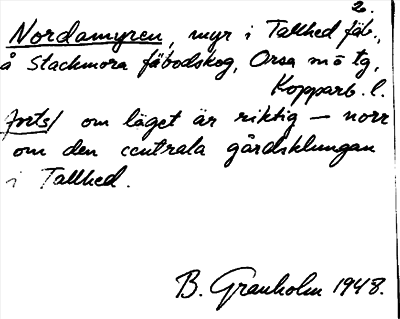 2.
Nordamyren, myr i Tallhed fäb.,
å Stackmora fäbodskog, Orsa m o tg,
Kopparb. l.
forts/ om läget är riktig – norr
om den centrala gårdsklungan
i Tallhed.
B. Granholm 1948.